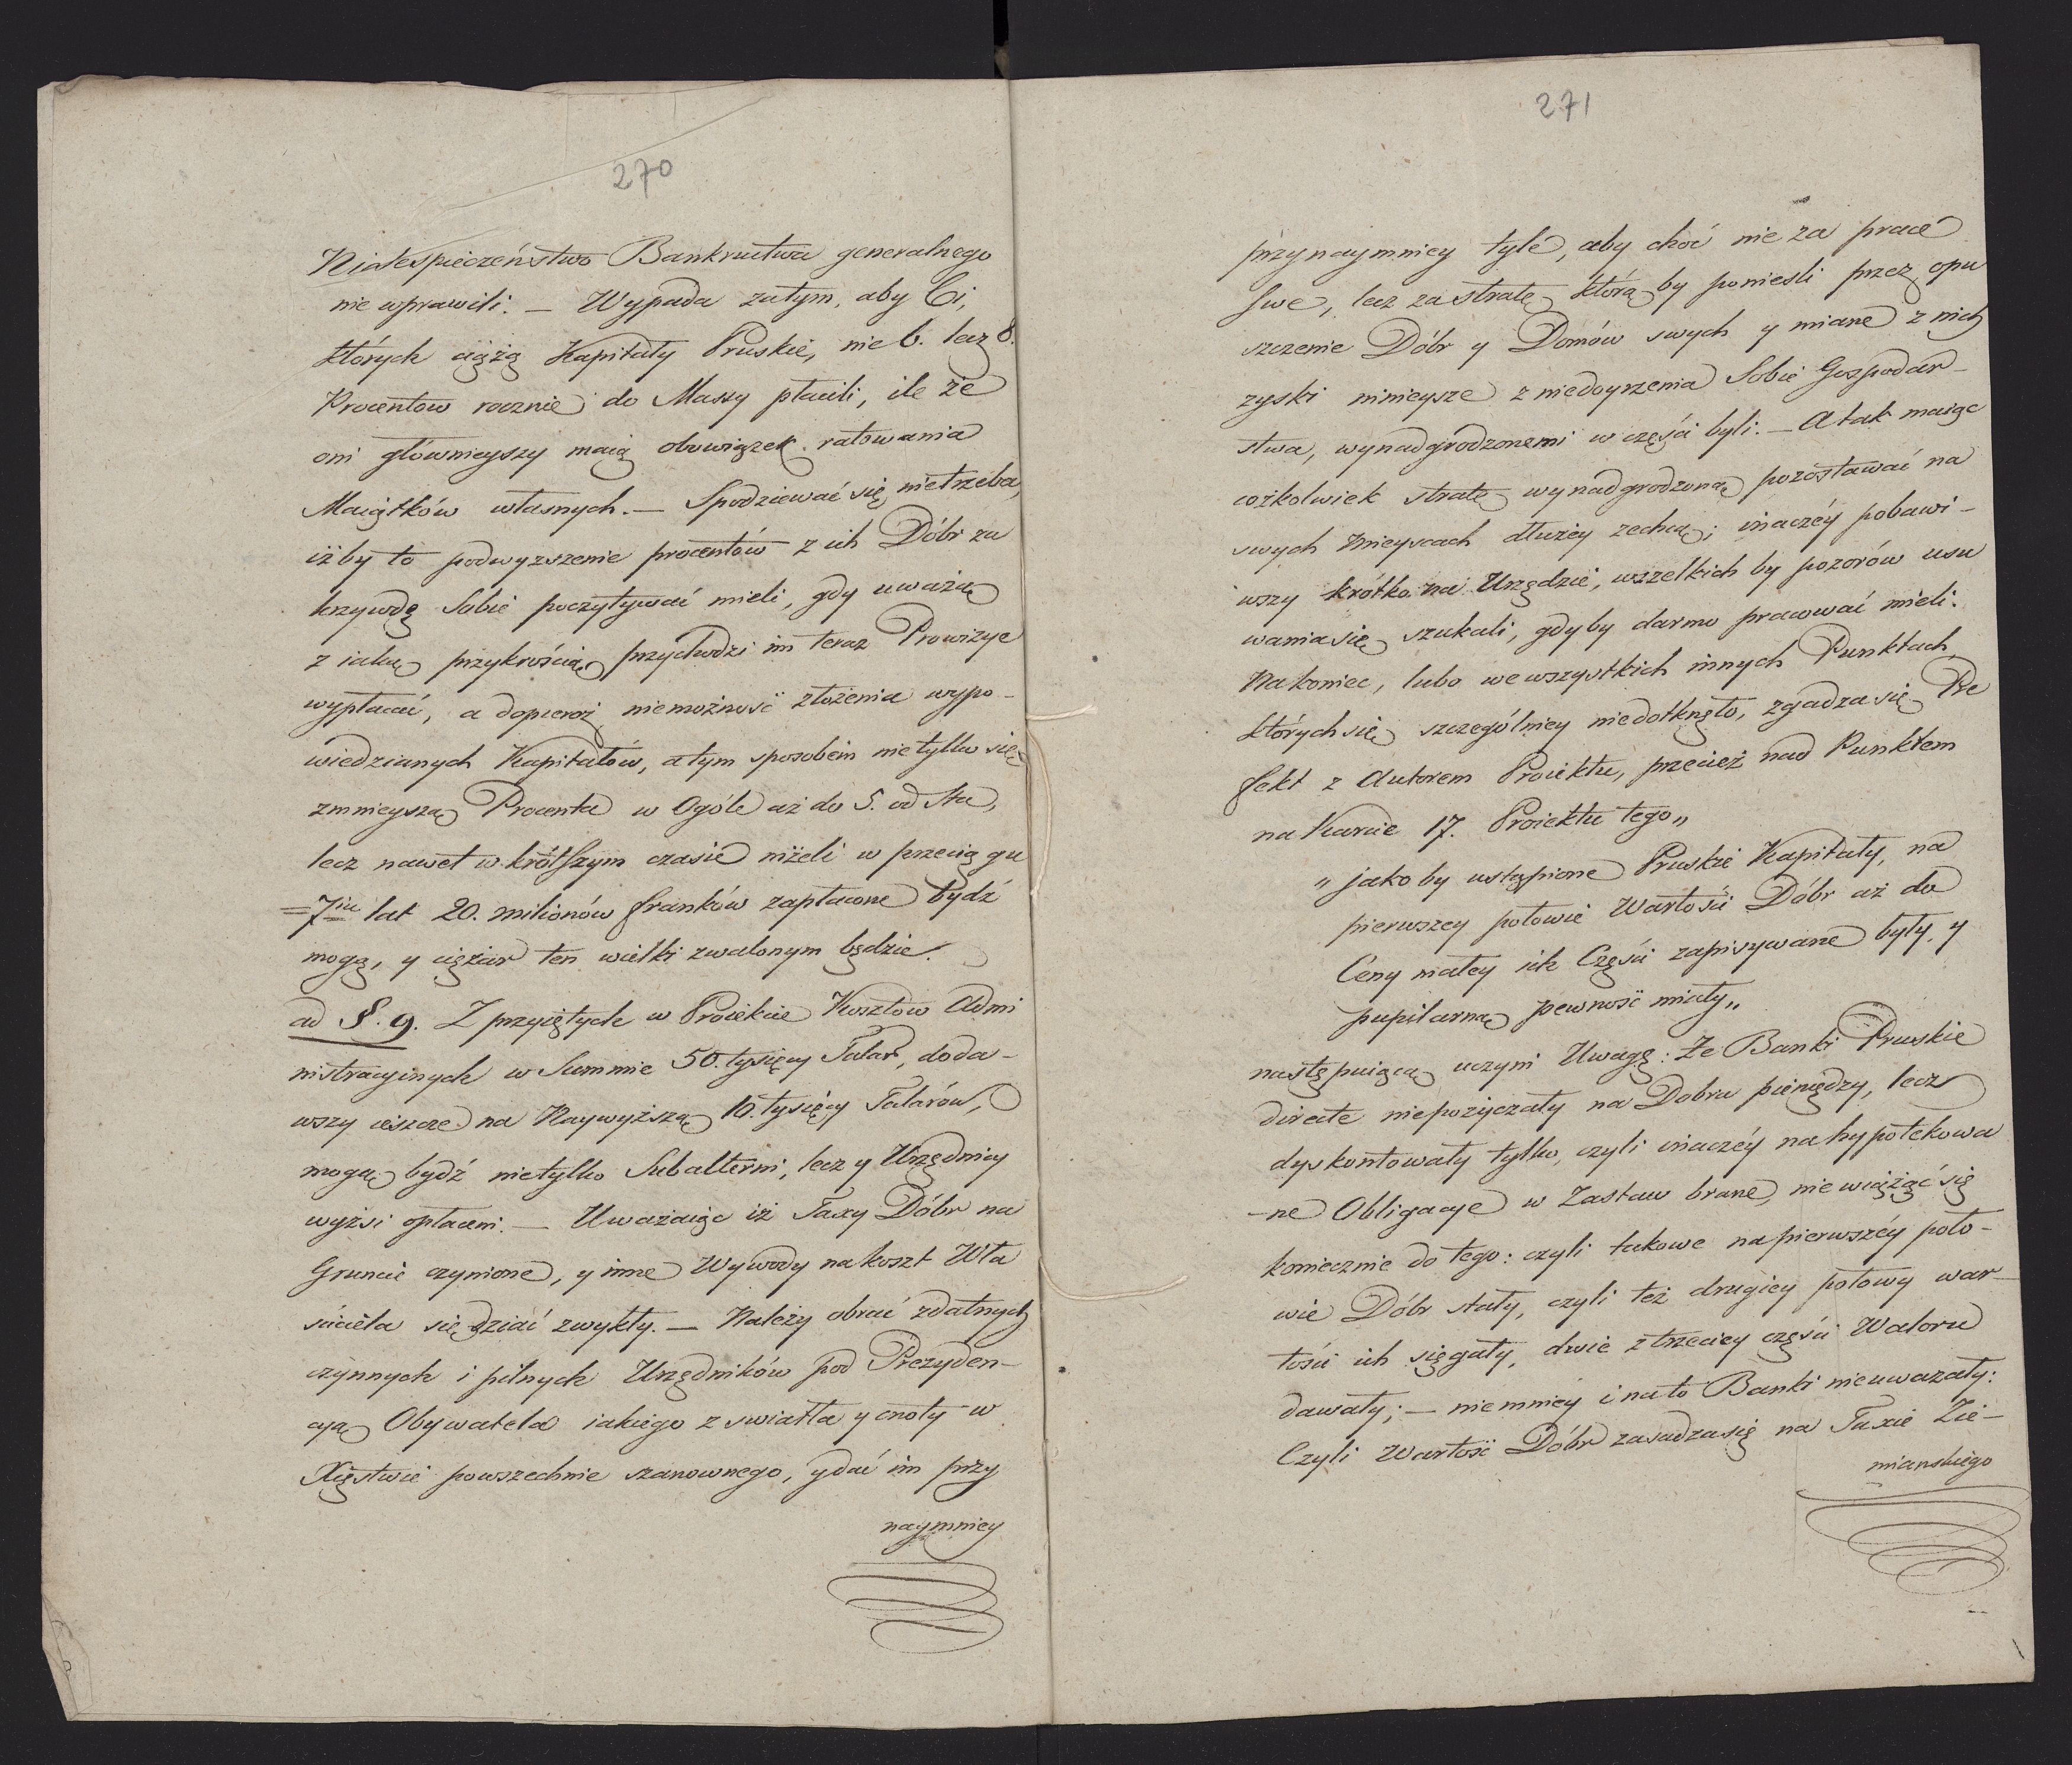 270
Niebespieczeństwo Bankructwa generalnego
nie wprawili. — Wypada zatym, aby Ci,
których ciążą Kapitały Pruskie, nie 6. lecz 8.
Procentow rocznie do Massy płacili, ile że
oni główmieyszy maią obowiązek ratowania
Maiątków własnych. — Spodziewać się nietrzeba,
iżby to podwyzszenie procentów z ich Dóbr za
krzywdę Sobie poczytywać mieli, gdy uważą
z iaką przykrością przychodzi im teraz Prowizye
wypłacać, a dopieroż niemożność złożenia wypo-
wiedzianych Kapitałów, a tym sposobem nie tylko się
zmnieyszą Procenta w Ogóle aż do 5. od Sta,
lecz nawet w krótszym czasie niżeli w przeciągu
=7iu lat 20. milionów franków zapłacone bydź
mogą, y ciężar ten wielki zwalonym będzie.
ad §. 9. Z przyiętych w Proiekcie Kosztow Admi
nistracyinych w Summie 50. tysięcy Talar, doda-
wszy ieszcze na Naywyższą 10. tysięcy Talarów,
mogą bydź nietylko Subalterni, lecz y Urzędnicy
wyżsi opłaceni. — Uważaiąc iż Taxy Dóbr na
Gruncie czynione, y inne Wywody na koszt Wła
ściciela się dziać zwykły. — Należy obrać zdatnych
czynnych i pilnych Urzędników pod Prezyden-
cyą Obywatela iakiego z swiatła y cnoty w
Xięstwie powszechnie szanownego, y dać im przy
naymniey
271
przynaymniey tyle, aby choć nie za pracę
swe, lecz za stratę którą by ponieśli przez opu
szczenie Dóbr y Domów swych y miane z nich
zyski mnieysze z niedoyrzenia Sobie Gospodar-
stwa, wynadgrodzonemi w części byli. — A tak maiąc
cożkolwiek stratę wynadgrodzoną pozostawać na
swych mieyscach dłużey zechcą; inaczéy pobawi-
wszy krótko na Urzędzie, wszelkich by pozorów usu
wania się szukali, gdyby darmo pracować mieli.
Nakoniec, lubo we wszystkich innych Punktach,
których się szczególniey niedotknęło, zgadza się Pre
fekt z Autorem Proiektu, przecież nad Punktem
na Karcie 17. Proiektu tego„
„jakoby ustąpione Pruskie Kapitały, na
pierwszey połowie Wartości Dóbr aż do
Ceny małey ich Części zapisywane były, y
pupilarną pewność miały„
następuiącą uczyni Uwagę: Że Banki Pruskie
directe niepożyczały na Dobra pieniędzy, lecz
dyskontowały tylko, czyli inaczéy na hypotekowa
-ne Obligacye w Zastaw brane, nie wiążąc się
koniecznie do tego: czyli takowe na pierwszéy poło-
wie Dóbr stały, czyli też drugiey połowy war-
tości ich sięgały, dwie z trzeciey części Waloru
dawały; — niemniéy i na to Banki nieuwazały:
Czyli Wartość Dóbr zasadza się na Taxie Zie-
mianskiego